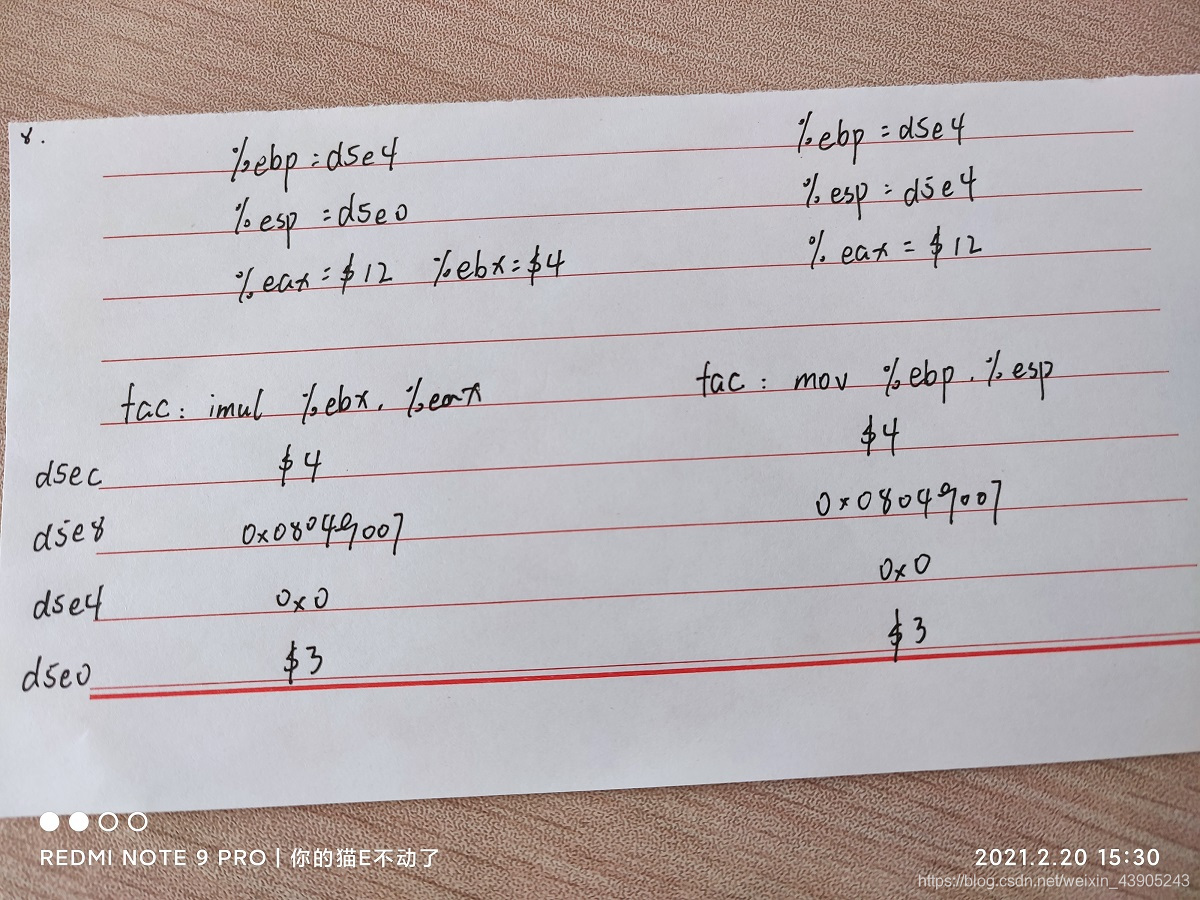 8.
%ebp = d5e4
%esp = d5e0
%eax = $12 %ebx = $4
fac: imul %ebx, %eax
d5ec $4
d5e8 0x08049007
d5e4 0x0
d5e0 $3
%ebp = d5e4
%esp = d5e4
%eax = $12
fac: mov %ebp, %esp
$4
0x08049007
0x0
$3
REDMI NOTE 9 PRO | 你的猫E不动了
2021.2.20 15:30
https://blog.csdn.net/weixin_43905243